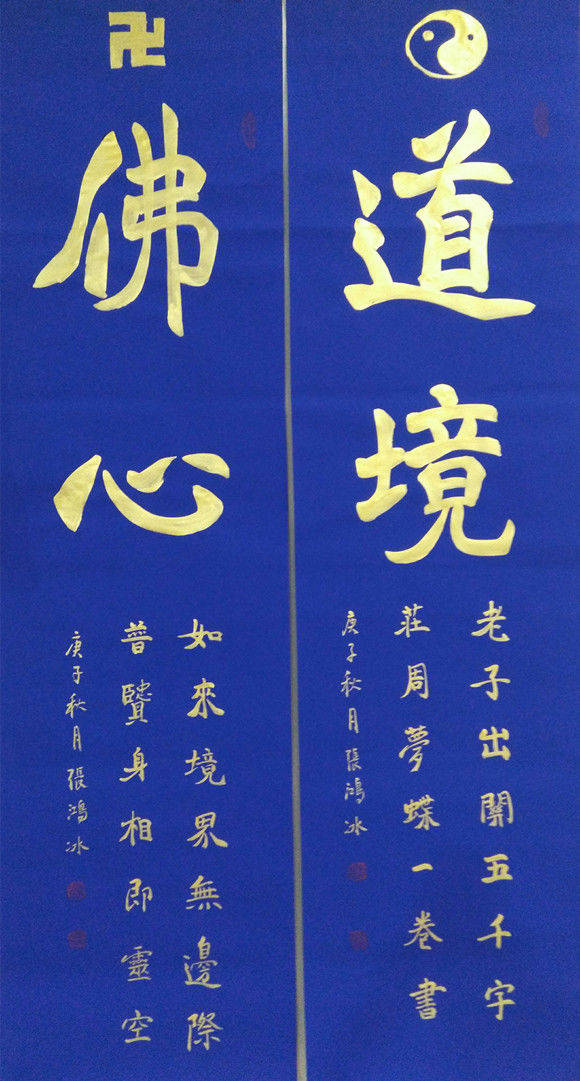 道境
老子出關五千字
莊周夢蝶一卷書
庚子秋月張鴻冰
卍
佛心
如來境界無邊際
普贒身相即靈空
庚子秋月張鴻冰